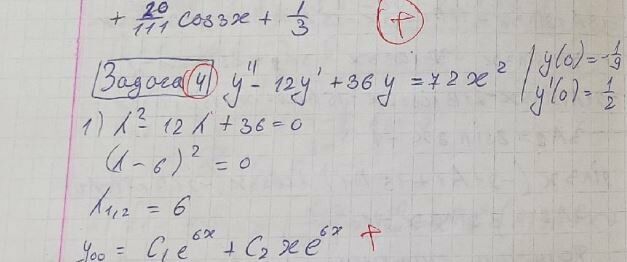 + 20/111 cos3x + 1/3 (+)
Задача 4 y'' - 12y' + 36y = 72x² | y(0) = -1/9
y'(0) = 1/2
1) λ² - 12λ + 36 = 0
(λ - 6)² = 0
λ₁,₂ = 6
y₀₀ = C₁e^6x + C₂xe^6x +